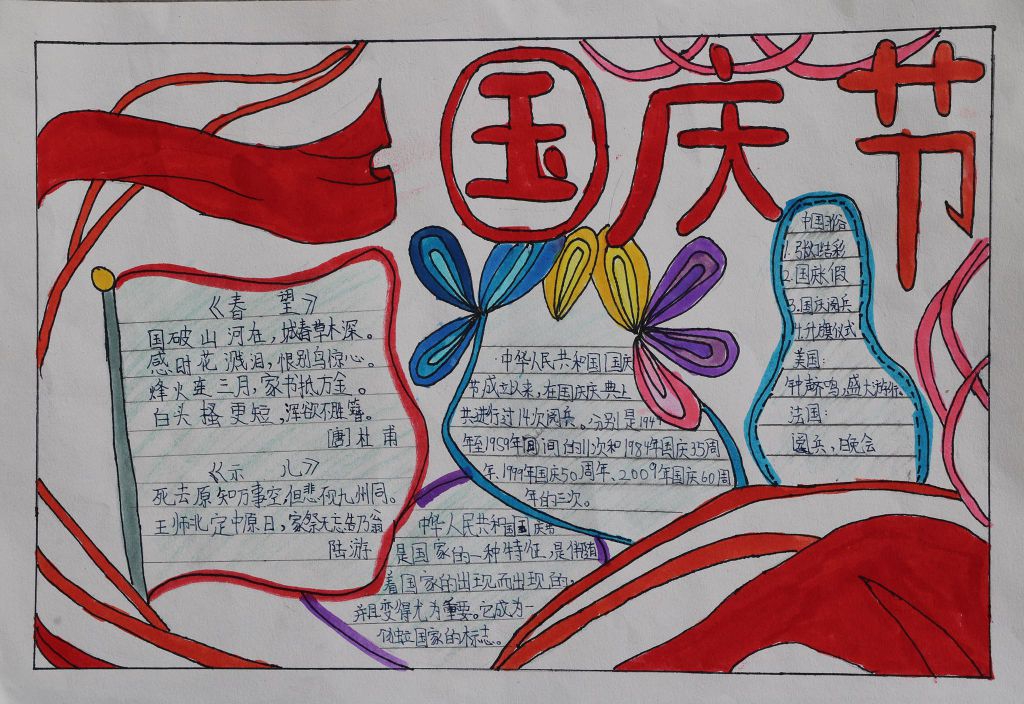 国庆节
《春望》
国破山河在，城春草木深。
感时花溅泪，恨别鸟惊心。
烽火连三月，家书抵万金。
白头搔更短，浑欲不胜簪。
[唐]杜甫
《示儿》
死去原知万事空，但悲不见九州同。
王师北定中原日，家祭无忘告乃翁
陆游
·中华人民共和国国庆
节成立以来，在国庆庆典上
共进行过14次阅兵。分别是1949
年至1959年间的11次和1984年国庆35周
年、1999年国庆50周年、2009年国庆60周
年的三次。
中华人民共和国国庆节
是国家的一种特征，是伴随
着国家的出现而出现的，
并且变得尤为重要。它成为一
个独立国家的标志。
中国习俗
1.张灯结彩
2.国庆假
3.国庆阅兵
4.升旗仪式
美国：
钟轿鸣，盛大游行。
法国：
阅兵，晚会